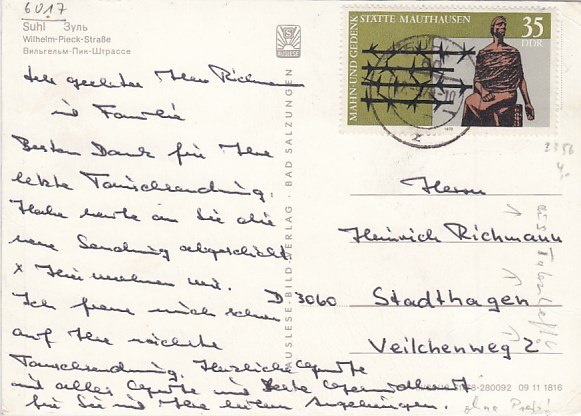 6017
Suhl Зуль
Wilhelm-Pieck-Straße
Вильгельм-Пик-Штрассе
AUSLESE-BILD-VERLAG · BAD SALZUNGEN
MAHN- UND GEDENKSTÄTTE MAUTHAUSEN
35
DDR
Sehr geehrter Herr Richmann
und Familie
Besten Dank für Ihre
letzte Tauschsendung.
Habe heute an Sie die
neue Sendung abgeschickt.
Ich freue mich schon
auf Ihre nächste
Tauschsendung. Herzliche Grüße
und alles Gute und beste Gesundheit
für Sie und Ihre lieben Angehörigen.
Herrn
Heinrich Richmann
D 3060 Stadthagen
Veilchenweg 2
280092 09 11 1816